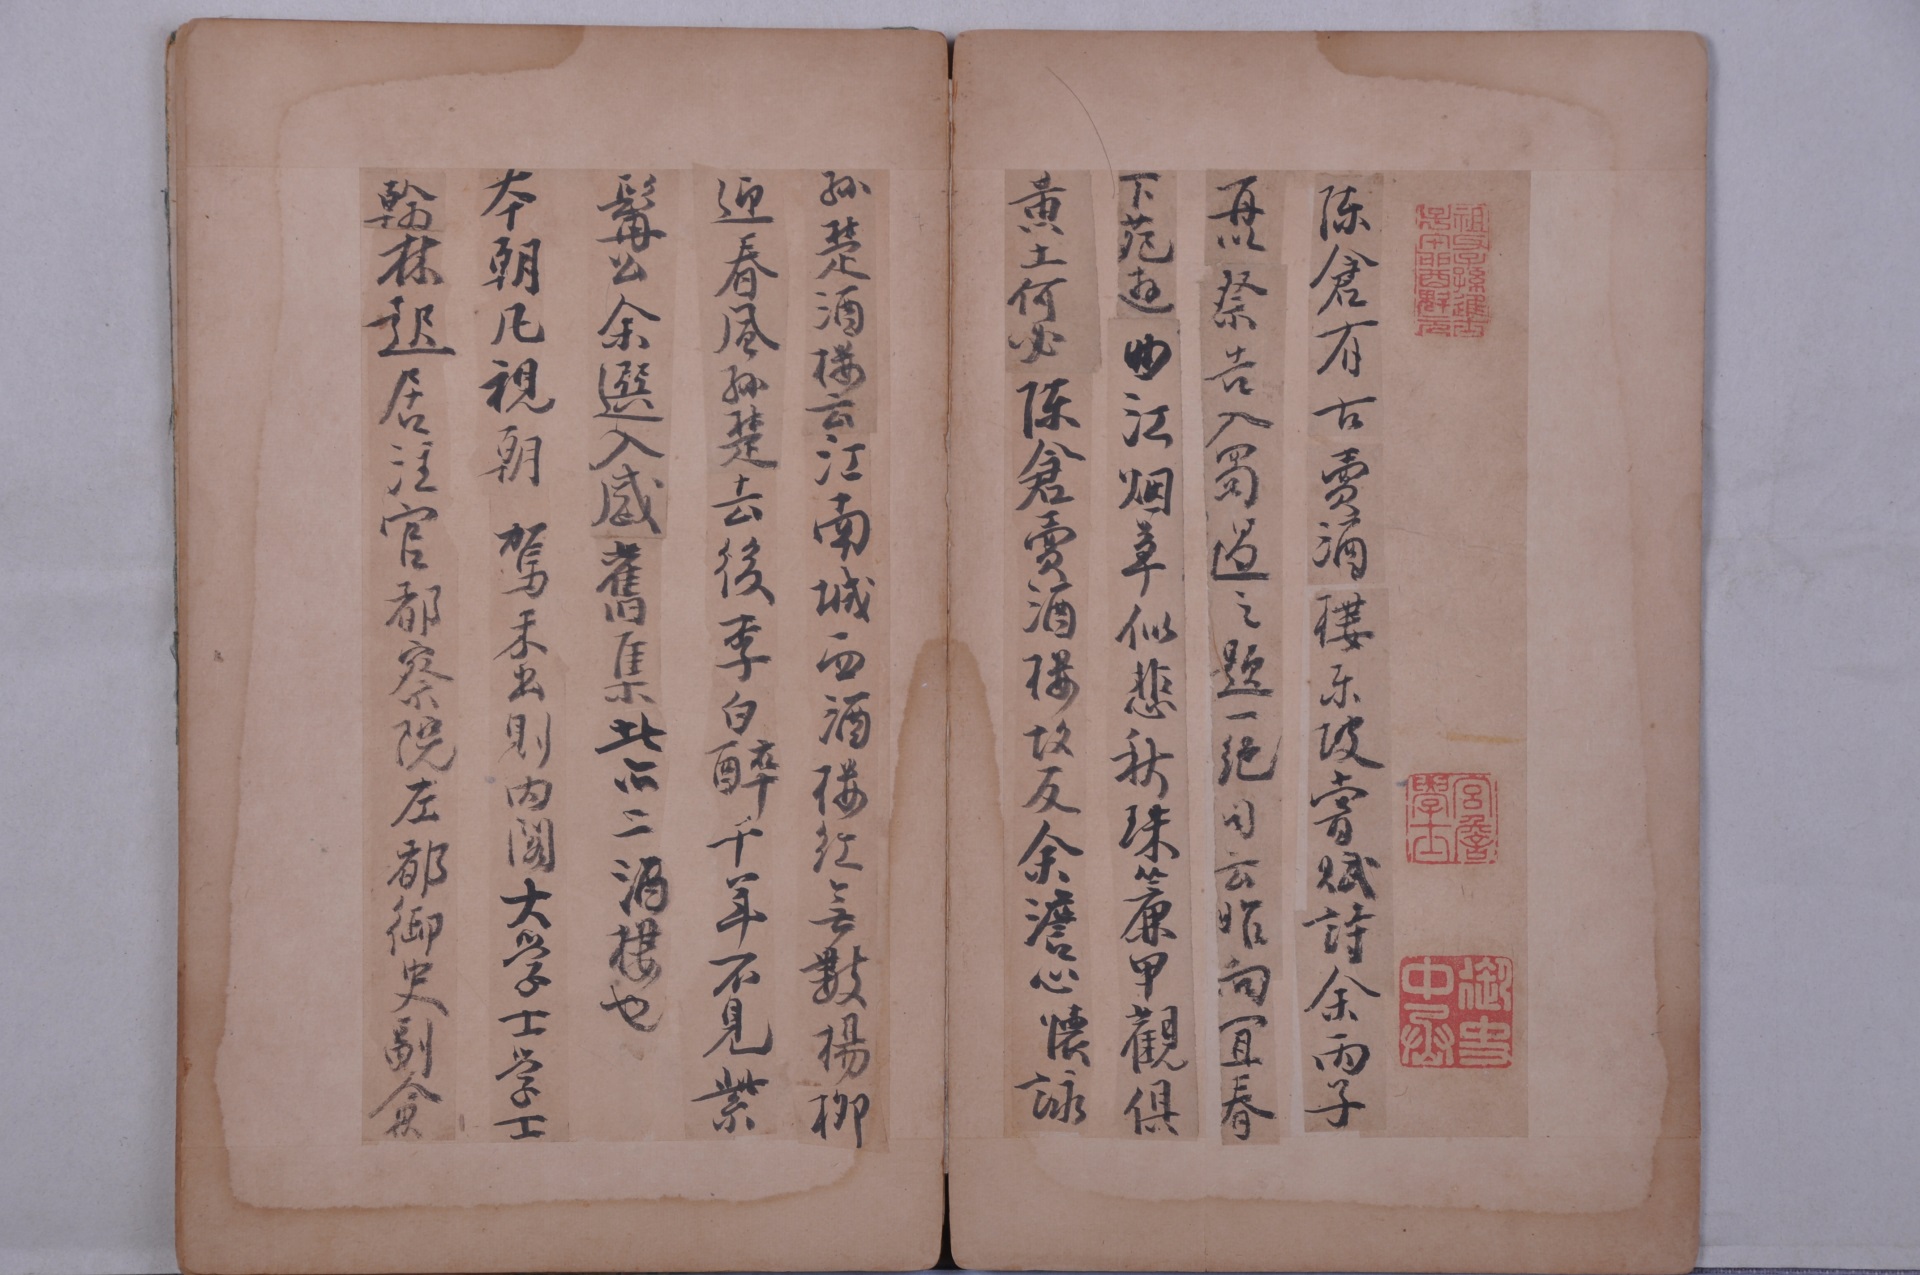 宮詹
學士
御史
中丞
陳倉有古賣酒樓東坡嘗賦詩余丙子
再以祭告入蜀過之題一絕句云昨向宜春
下苑遊曲江烟草似悲秋珠簾甲觀俱
黃土何必陳倉賣酒樓故友余澹心懷詠
孫楚酒樓云江南城西酒樓紅無數楊柳
迎春風孫楚去後李白醉千年不見紫
髯公余選入感舊集此亦二酒樓也
本朝凡視朝 駕未出則内閣大学士学士
翰林起居注官都察院左都御史副僉